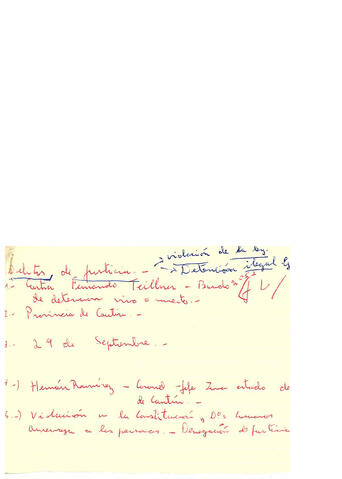 violación de la ley.
Delitos de justicia. - → Detención ilegal
1- Contra Fernando Teillier - Bando
de detencion vivo o muerto. -
2- Provincia de Cautín. -
3. - 29 de Septiembre. -
4-) Hernán Ramírez - Coronel - Jefe Zona estado de
de Cautín. -
5-) Violación a la Constitución y Dos humanos
amenaza a las personas. - Denegación de justicia